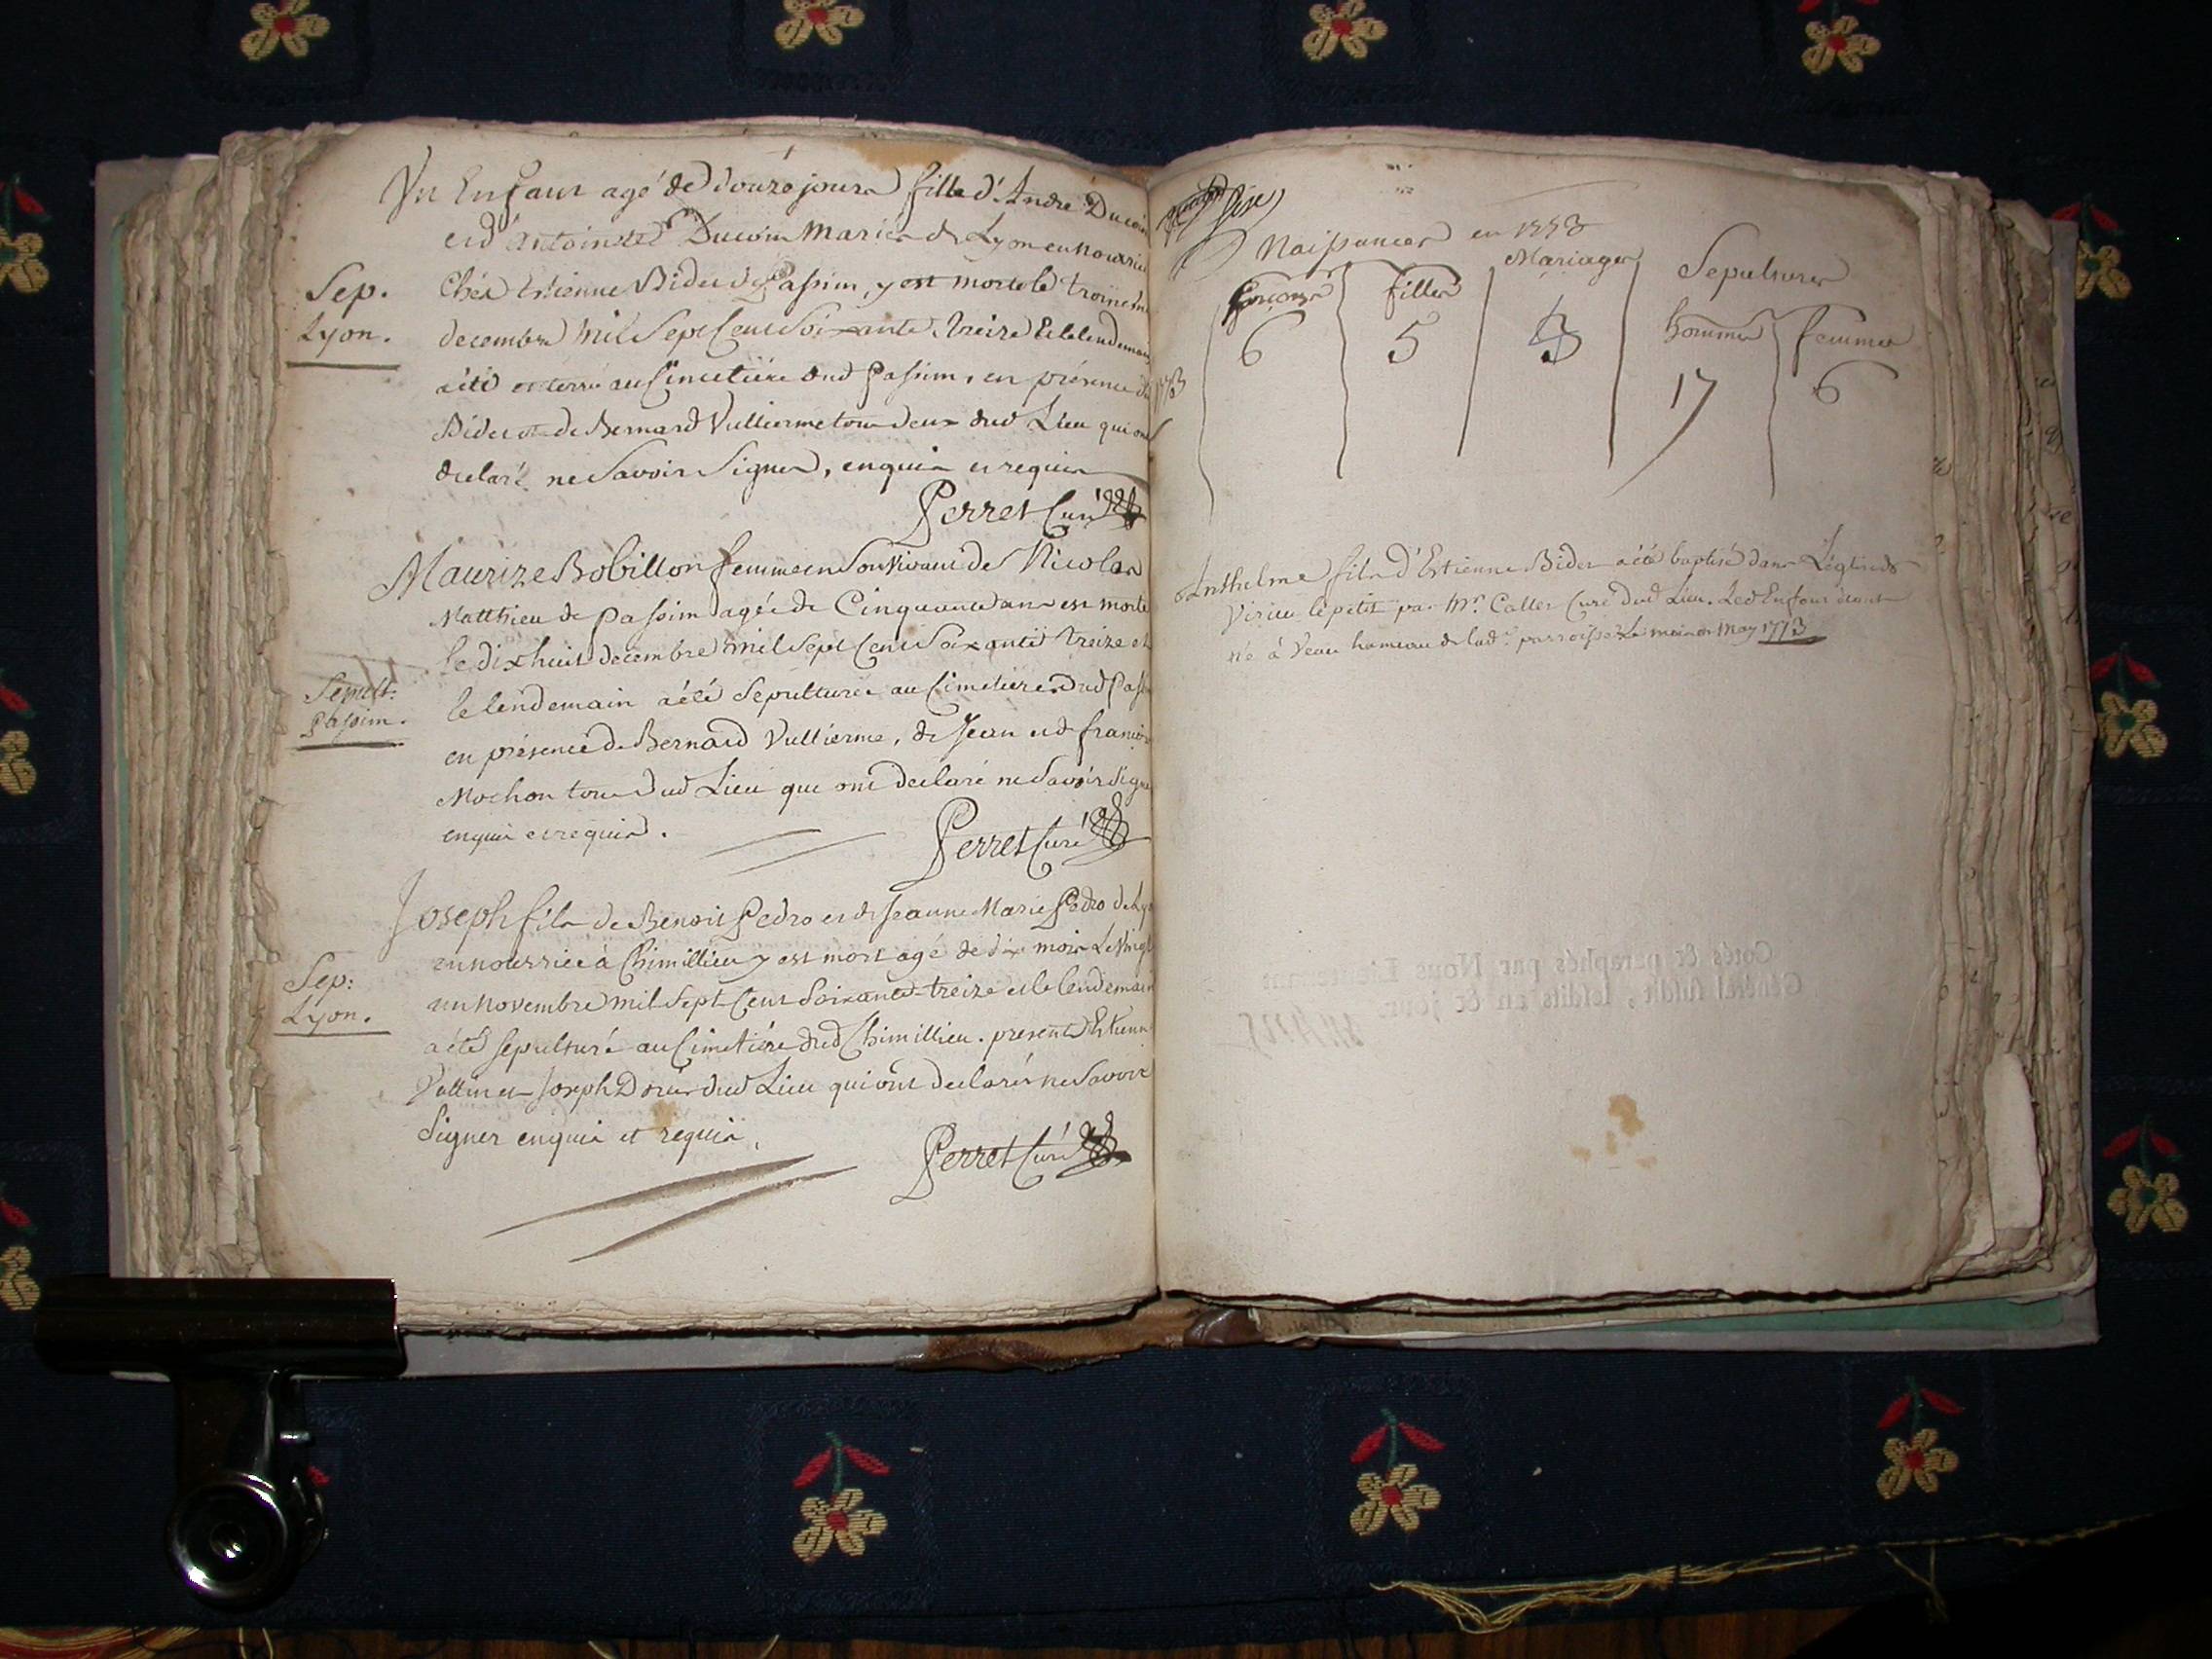 Un Enfant agé de douze jours fille d'André Ducoin
et d'Antoinette Ducoin Mariés de Lyon en nourrice
Sep.
Lyon.
Chés Estienne Bider de Passin, y est morte le troisieme
decembre mil Sept Cent Soixante treize Et le lendemain
a été enterré au Cimetière dud Passin, en présence du
Bider et de Bernard Vullierme tous deux dud Lieu qui ont
declaré ne Savoir Signer, enquis et requis
Perret Curé
Maurize Bobillon femme en Son Vivant de Nicolas
Matthieu de Passin agée de Cinquante ans est morte
le dix huit decembre mil Sept Cent Soixante treize et
Sepult:
Passin.
le lendemain a été Sepulturée au Cimetière dud Passin
en présence de Bernard Vullierme, de Jean et de françois
Mochon tous dud Lieu qui ont declaré ne Savoir Signer
enquis et requis.
Perret Curé
Joseph fils de Benoit Pedro et de Jeanne Marie Pedro de Lyon
en nourrice à Chimillieu y est mort agé de dix mois Le Vingt
Sep:
Lyon.
un Novembre mil Sept Cent Soixante treize et le lendemain
a été Sepulturé au Cimetière dud Chimillieu. présents Estienne
Vullin et Joseph Dorier dud Lieu qui ont declarés ne Savoir
Signer enquis et requis,
Perret Curé
six
Naissances en 1773
Mariages
Sepultures
Garçons
filles
hommes
femmes
6
5
3
17
6
Anthelme fils d'Estienne Bider a été baptisé dans L'église de
Virieu le petit par Mr. Caller Curé dud Lieu. Led Enfant étant
né à Veau hameau de lad. parroisse Le mois de May 1773
Cotés & paraphés par Nous Lieutenant
Général susdit, lesdits an & jour.